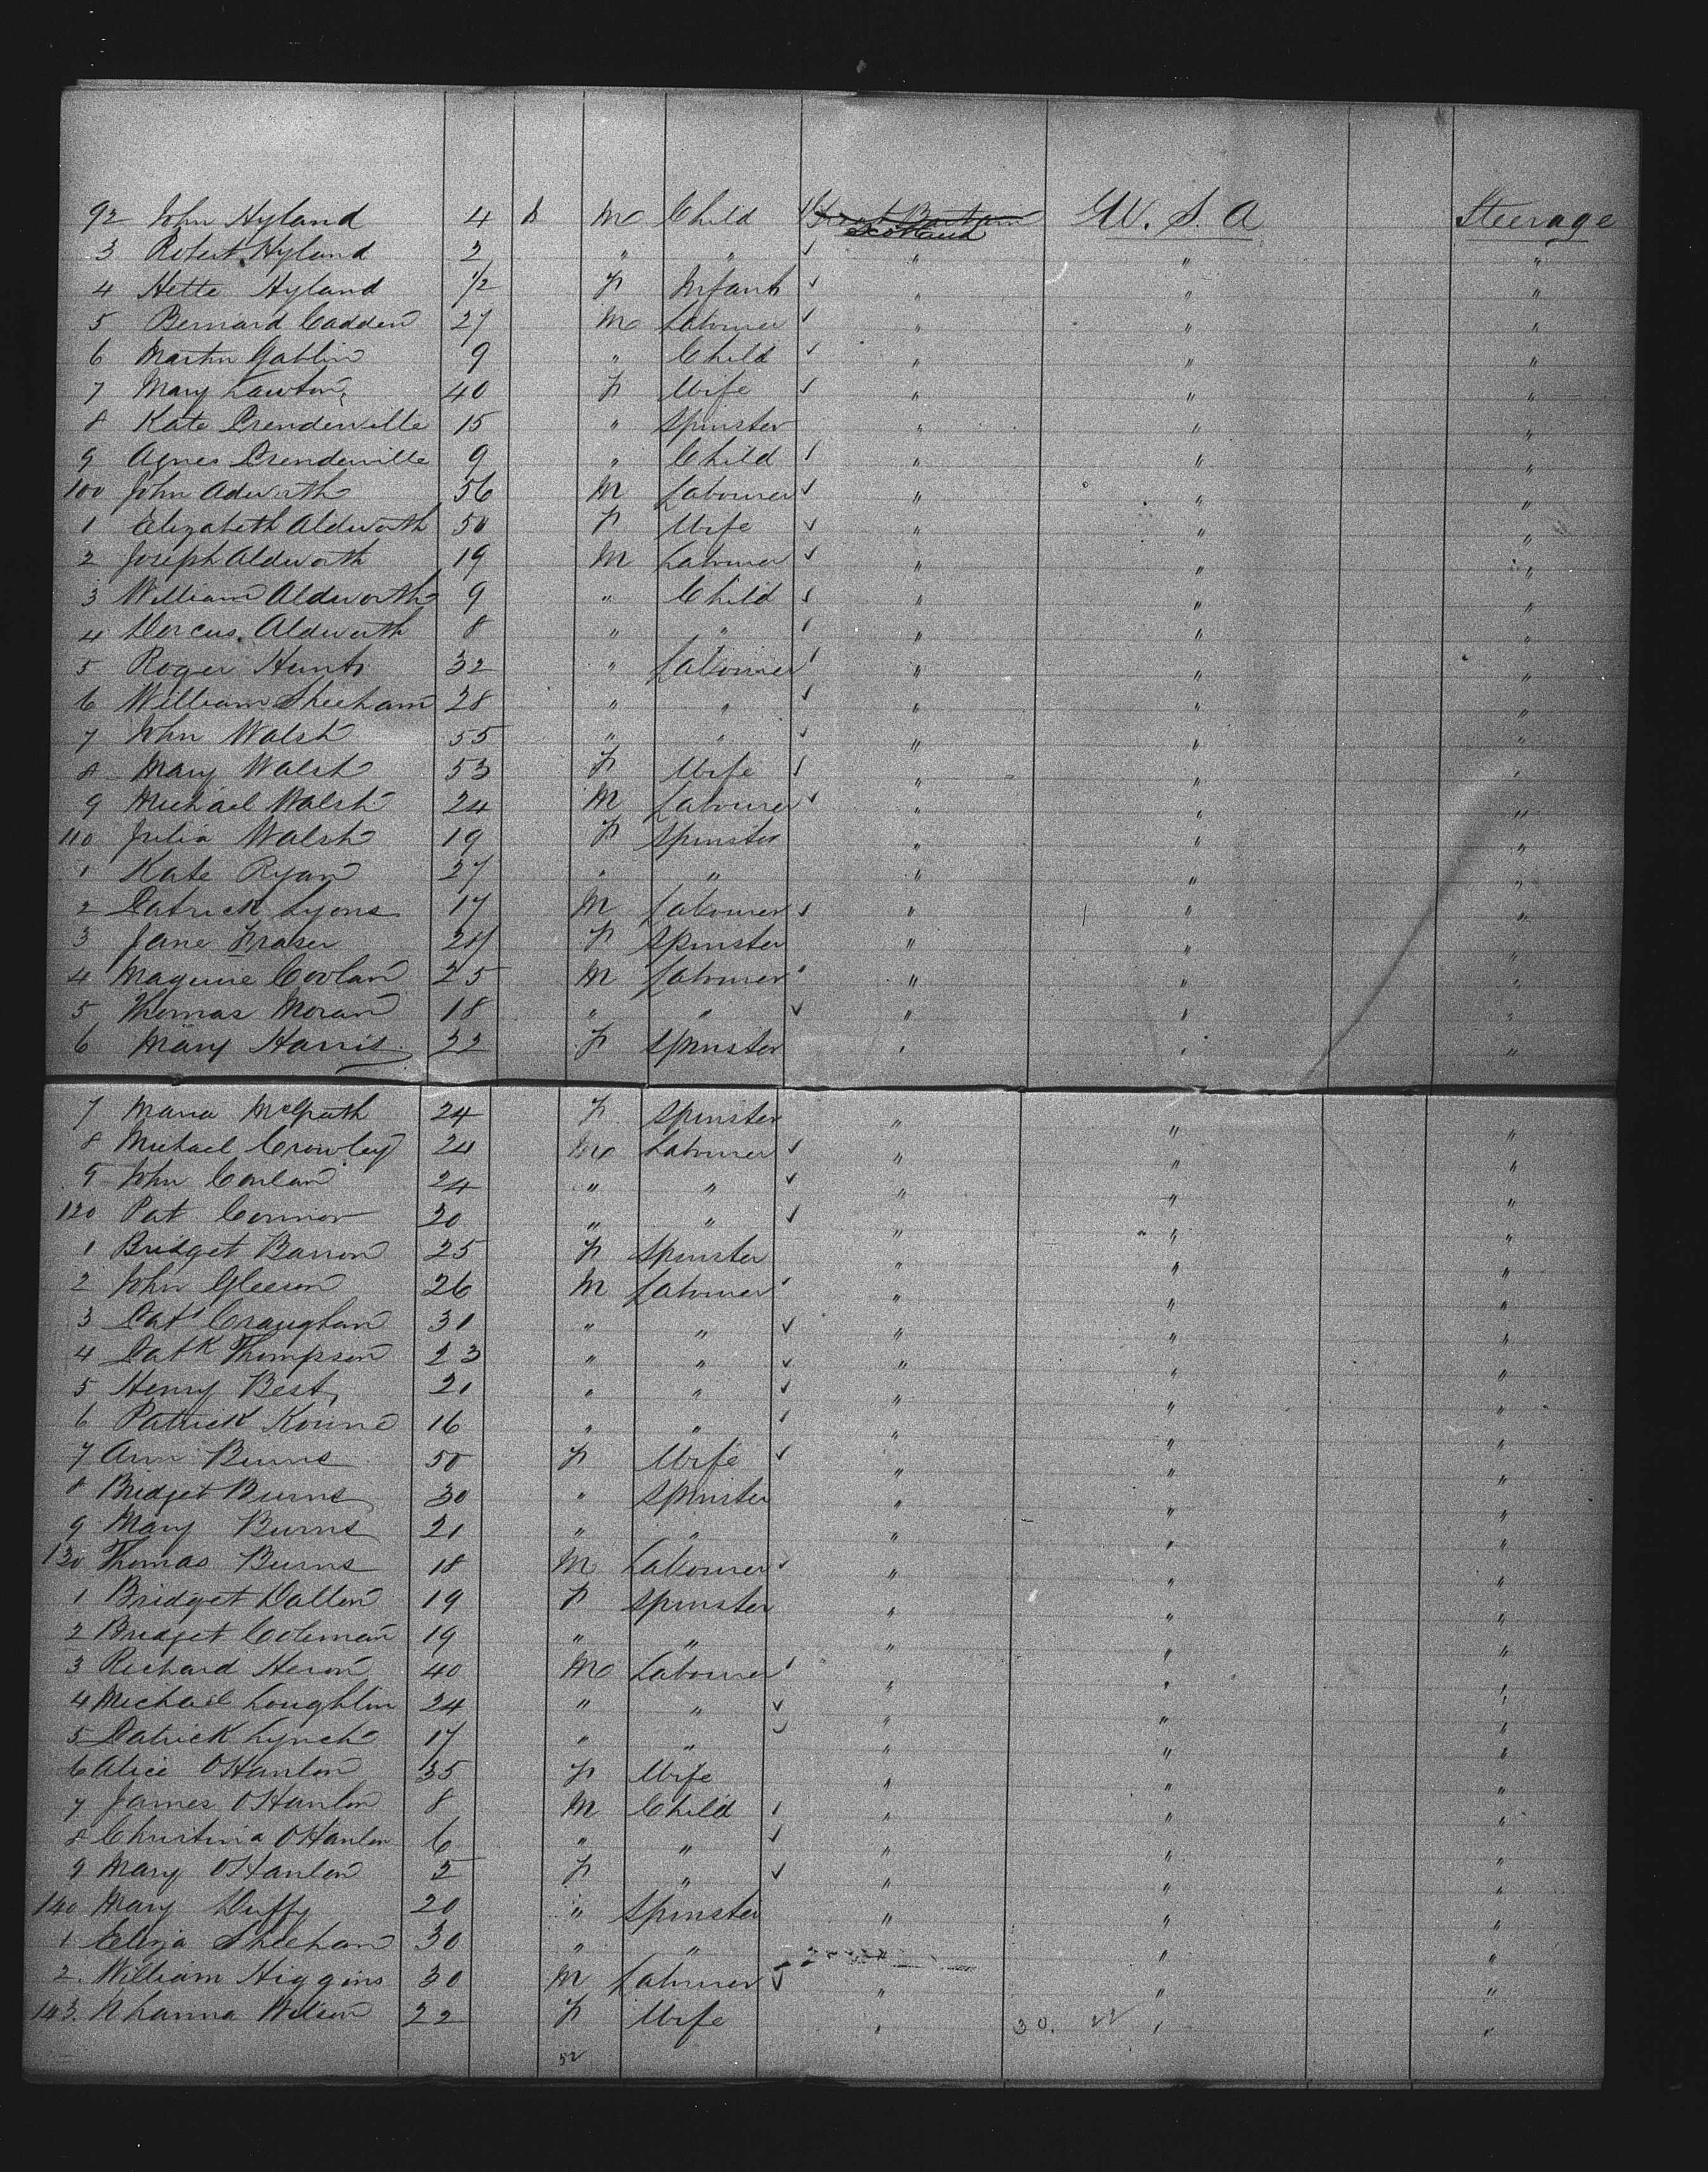 92 John Hyland 4 M Child Great Britain Scotland U. S. A Steerage
3 Robert Hyland 2 " " ✓ " " "
4 Hette Hyland 1/2 F Infant ✓ " " "
5 Bernard Cadden 27 M Labourer ✓ " " "
6 Martin Gablin 9 " Child ✓ " " "
7 Mary Lawton 40 F Wife ✓ " " "
8 Kate Prenderville 15 " Spinster " " "
9 Agnes Prenderville 9 " Child ✓ " " "
100 John Adworth 56 M Labourer ✓ " " "
1 Elizabeth Aldworth 50 F Wife ✓ " " "
2 Joseph Aldworth 19 M Labourer ✓ " " "
3 William Aldworth 9 " Child ✓ " " "
4 Dorcus Aldworth 8 " " ✓ " " "
5 Roger Hunt 32 " Labourer ✓ " " "
6 William Sheehan 28 " " ✓ " " "
7 John Walsh 55 " " ✓ " " "
8 Mary Walsh 53 F Wife ✓ " " "
9 Michael Walsh 24 M Labourer ✓ " " "
110 Julia Walsh 19 F Spinster " " "
1 Kate Ryan 27 " " " " "
2 Patrick Lyons 17 M Labourer ✓ " " "
3 Jane Fraser 24 F Spinster " " "
4 Maguire Coolan 25 M Labourer ✓ " " "
5 Thomas Moran 18 " " ✓ " " "
6 Mary Harris 22 F Spinster " " "
7 Maria McGrath 24 F Spinster " " "
8 Michael Crowley 24 M Labourer ✓ " " "
9 John Conlan 24 " " ✓ " " "
120 Pat Connor 20 " " ✓ " " "
1 Bridget Barron 25 F Spinster " " "
2 John Gleeson 26 M Labourer ✓ " " "
3 Pat Craughan 31 " " ✓ " " "
4 Patk Thompson 23 " " ✓ " " "
5 Henry Best 21 " " ✓ " " "
6 Patrick 16 " " ✓ " " "
7 Ann Burns 50 F Wife ✓ " " "
8 Bridget Burns 30 " Spinster " " "
9 Mary Burns 21 " " " " "
130 Thomas Burns 18 M Labourer ✓ " " "
1 Bridget Dallon 19 F Spinster " " "
2 Bridget Coleman 19 " " " " "
3 Richard Heron 40 M Labourer ✓ " " "
4 Michael Loughlin 24 " " ✓ " " "
5 Patrick Lynch 17 " " ✓ " " "
6 Alice OHanlon 35 F Wife " " "
7 James OHanlon 8 M Child ✓ " " "
8 Christina OHanlon 6 " " ✓ " " "
9 Mary OHanlon 5 F " ✓ " " "
140 Mary Duffy 20 " Spinster " " "
1 Eliza Sheehan 30 " " " " "
2. William Higgins 30 M Labourer ✓ " " "
143. Wilson 22 F Wife " 30. " "
52